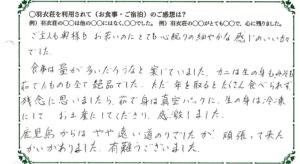 ○羽衣荘を利用されて(お食事・ご宿泊)のご感想は?
例)羽衣荘の○○は他の○○にはなく、○○でした。 例)羽衣荘の○○がとても○○で、心に残りました。
ご主人も奥様も お若いのにとても心配りの細やかな感じのいい方で
した。
食事は量が多いだろうなと案じていました。カニは生の身も
茹でたものも全て絶品でした。ただ年を取るとたくさん食べられず
残念に思いましたら、茹で身は真空パックに、生の身は冷凍
にして お土産にしてくださり、感動しました。
鹿児島からはやや遠い道のりでしたが 頑張って来た
かいがありました。有難うございました。